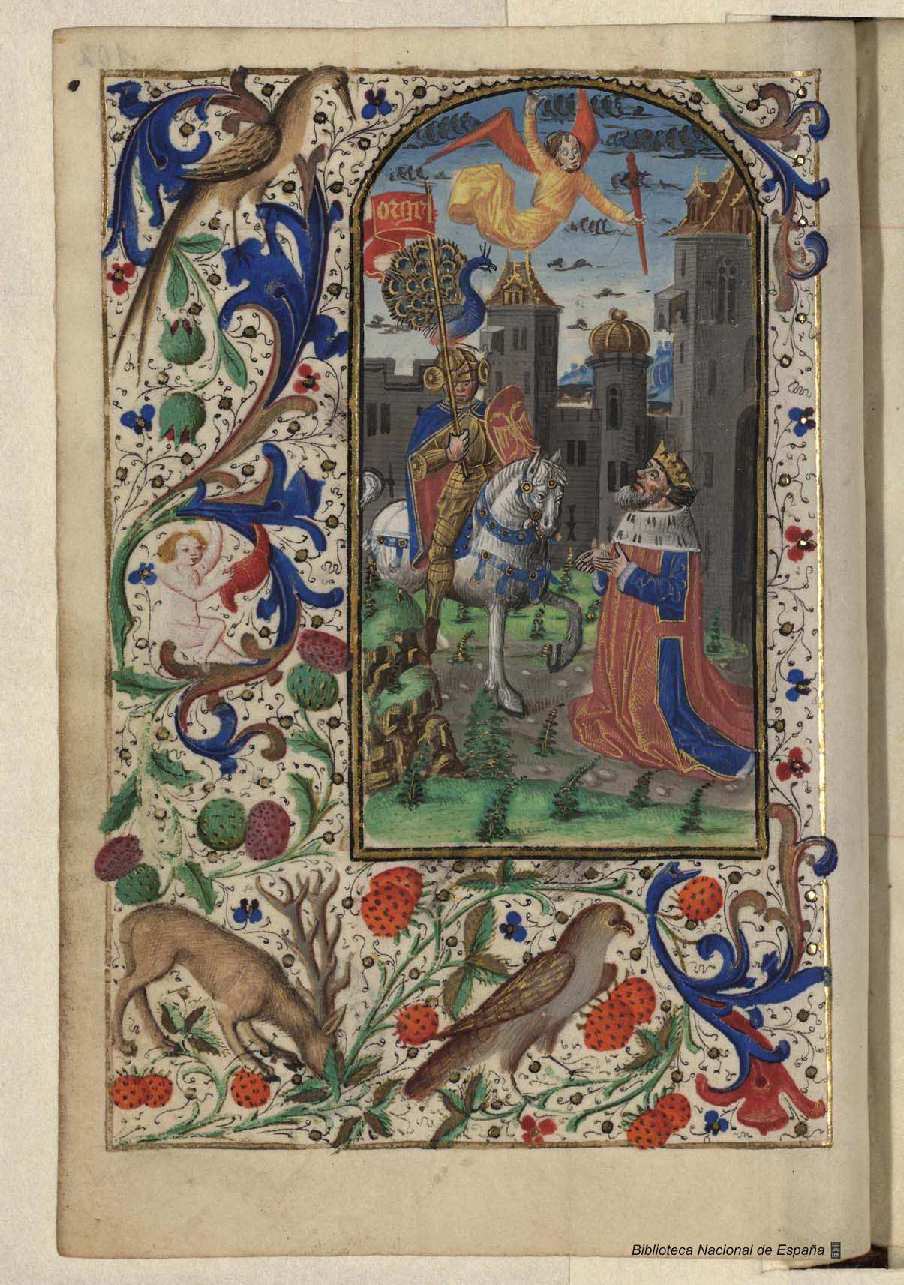 102
orgei
Biblioteca Nacional de España